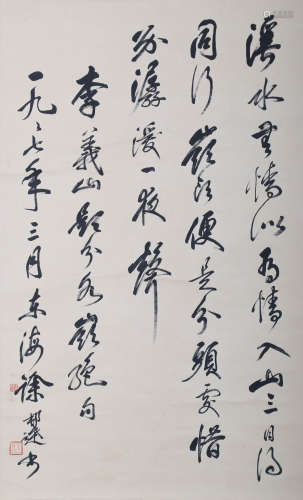 溪水無情似有情入山三日得
同行嶺頭便是分頭處惜
別潺湲一夜聲
李義山題分水嶺絕句
一九八七年三月東海徐邦達書